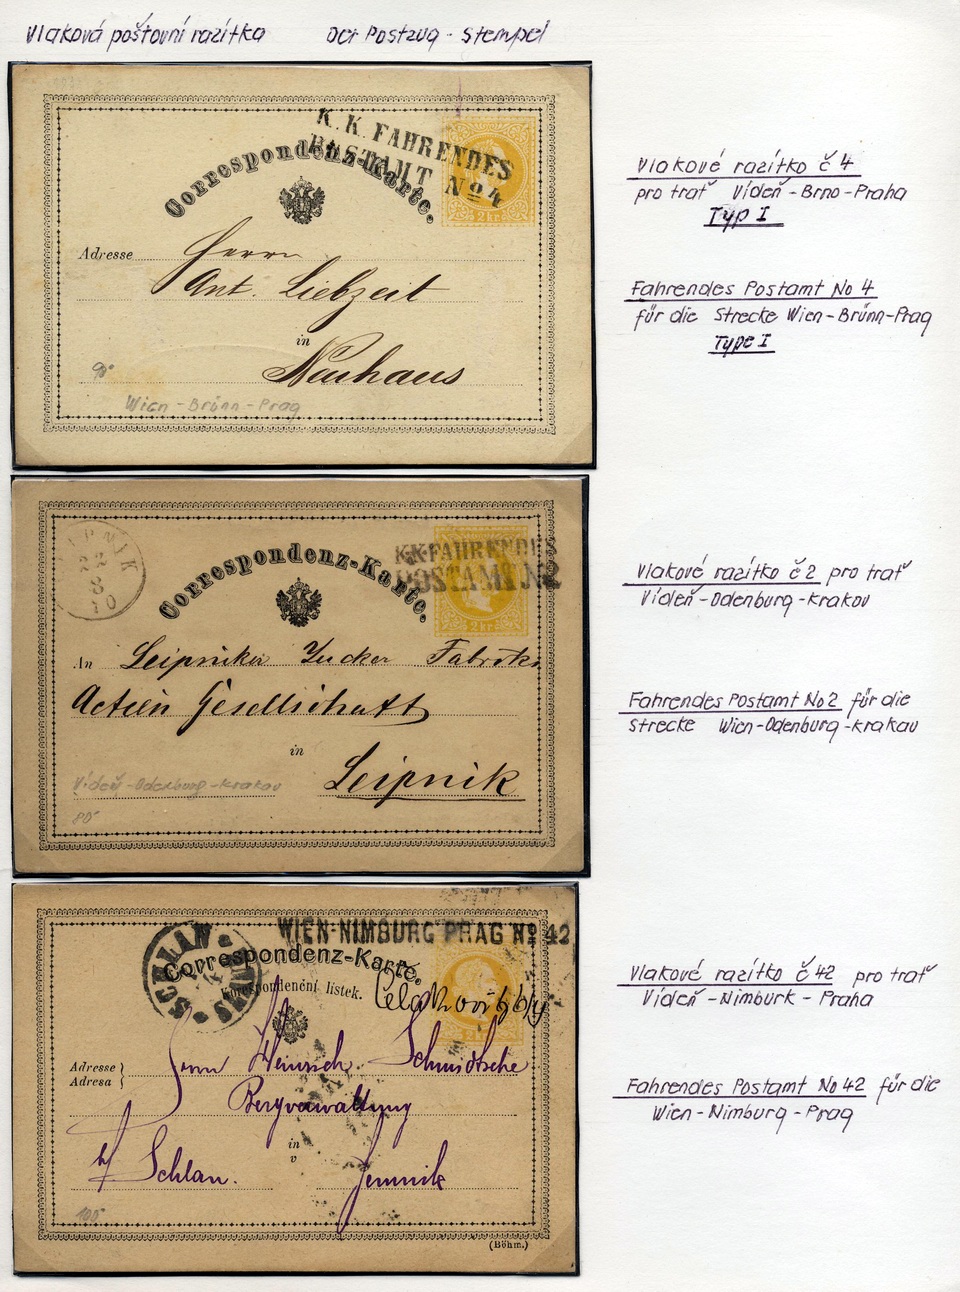 Vlaková poštovní razítka Der Postzug - Stempel
K. K. FAHRENDES
POSTAMT No 4
Correspondenz-Karte.
2 kr.
Adresse Herrn
Ant. Liebzeit
in
Neuhaus
90
Wien - Brünn - Prag
Vlakové razítko č 4
pro trať Vídeň - Brno - Praha
Typ I
Fahrendes Postamt No 4
für die Strecke Wien - Brünn - Prag
Type I
K.K. FAHRENDES
POSTAMT N 2
Correspondenz-Karte.
2 kr.
An Leipniker Zucker Fabriks
Actien Gesellschaft
in
Leipnik
Vídeň - Odenburg - Krakov
80
Vlakové razítko č 2 pro trať
Vídeň - Odenburg - Krakov
Fahrendes Postamt No 2 für die
strecke Wien - Odenburg - Krakau
WIEN-NIMBURG PRAG No 42
SCHLAN
Correspondenz-Karte.
Korespondenční lístek.
Adresse Herrn Heinrich
Adresa
Bergverwaltung
in
v
Schlan. Jemnik
100
(Böhm.)
Vlakové razítko č 42 pro trať
Vídeň - Nimburk - Praha
Fahrendes Postamt No 42 für die
Wien - Nimburg - Prag